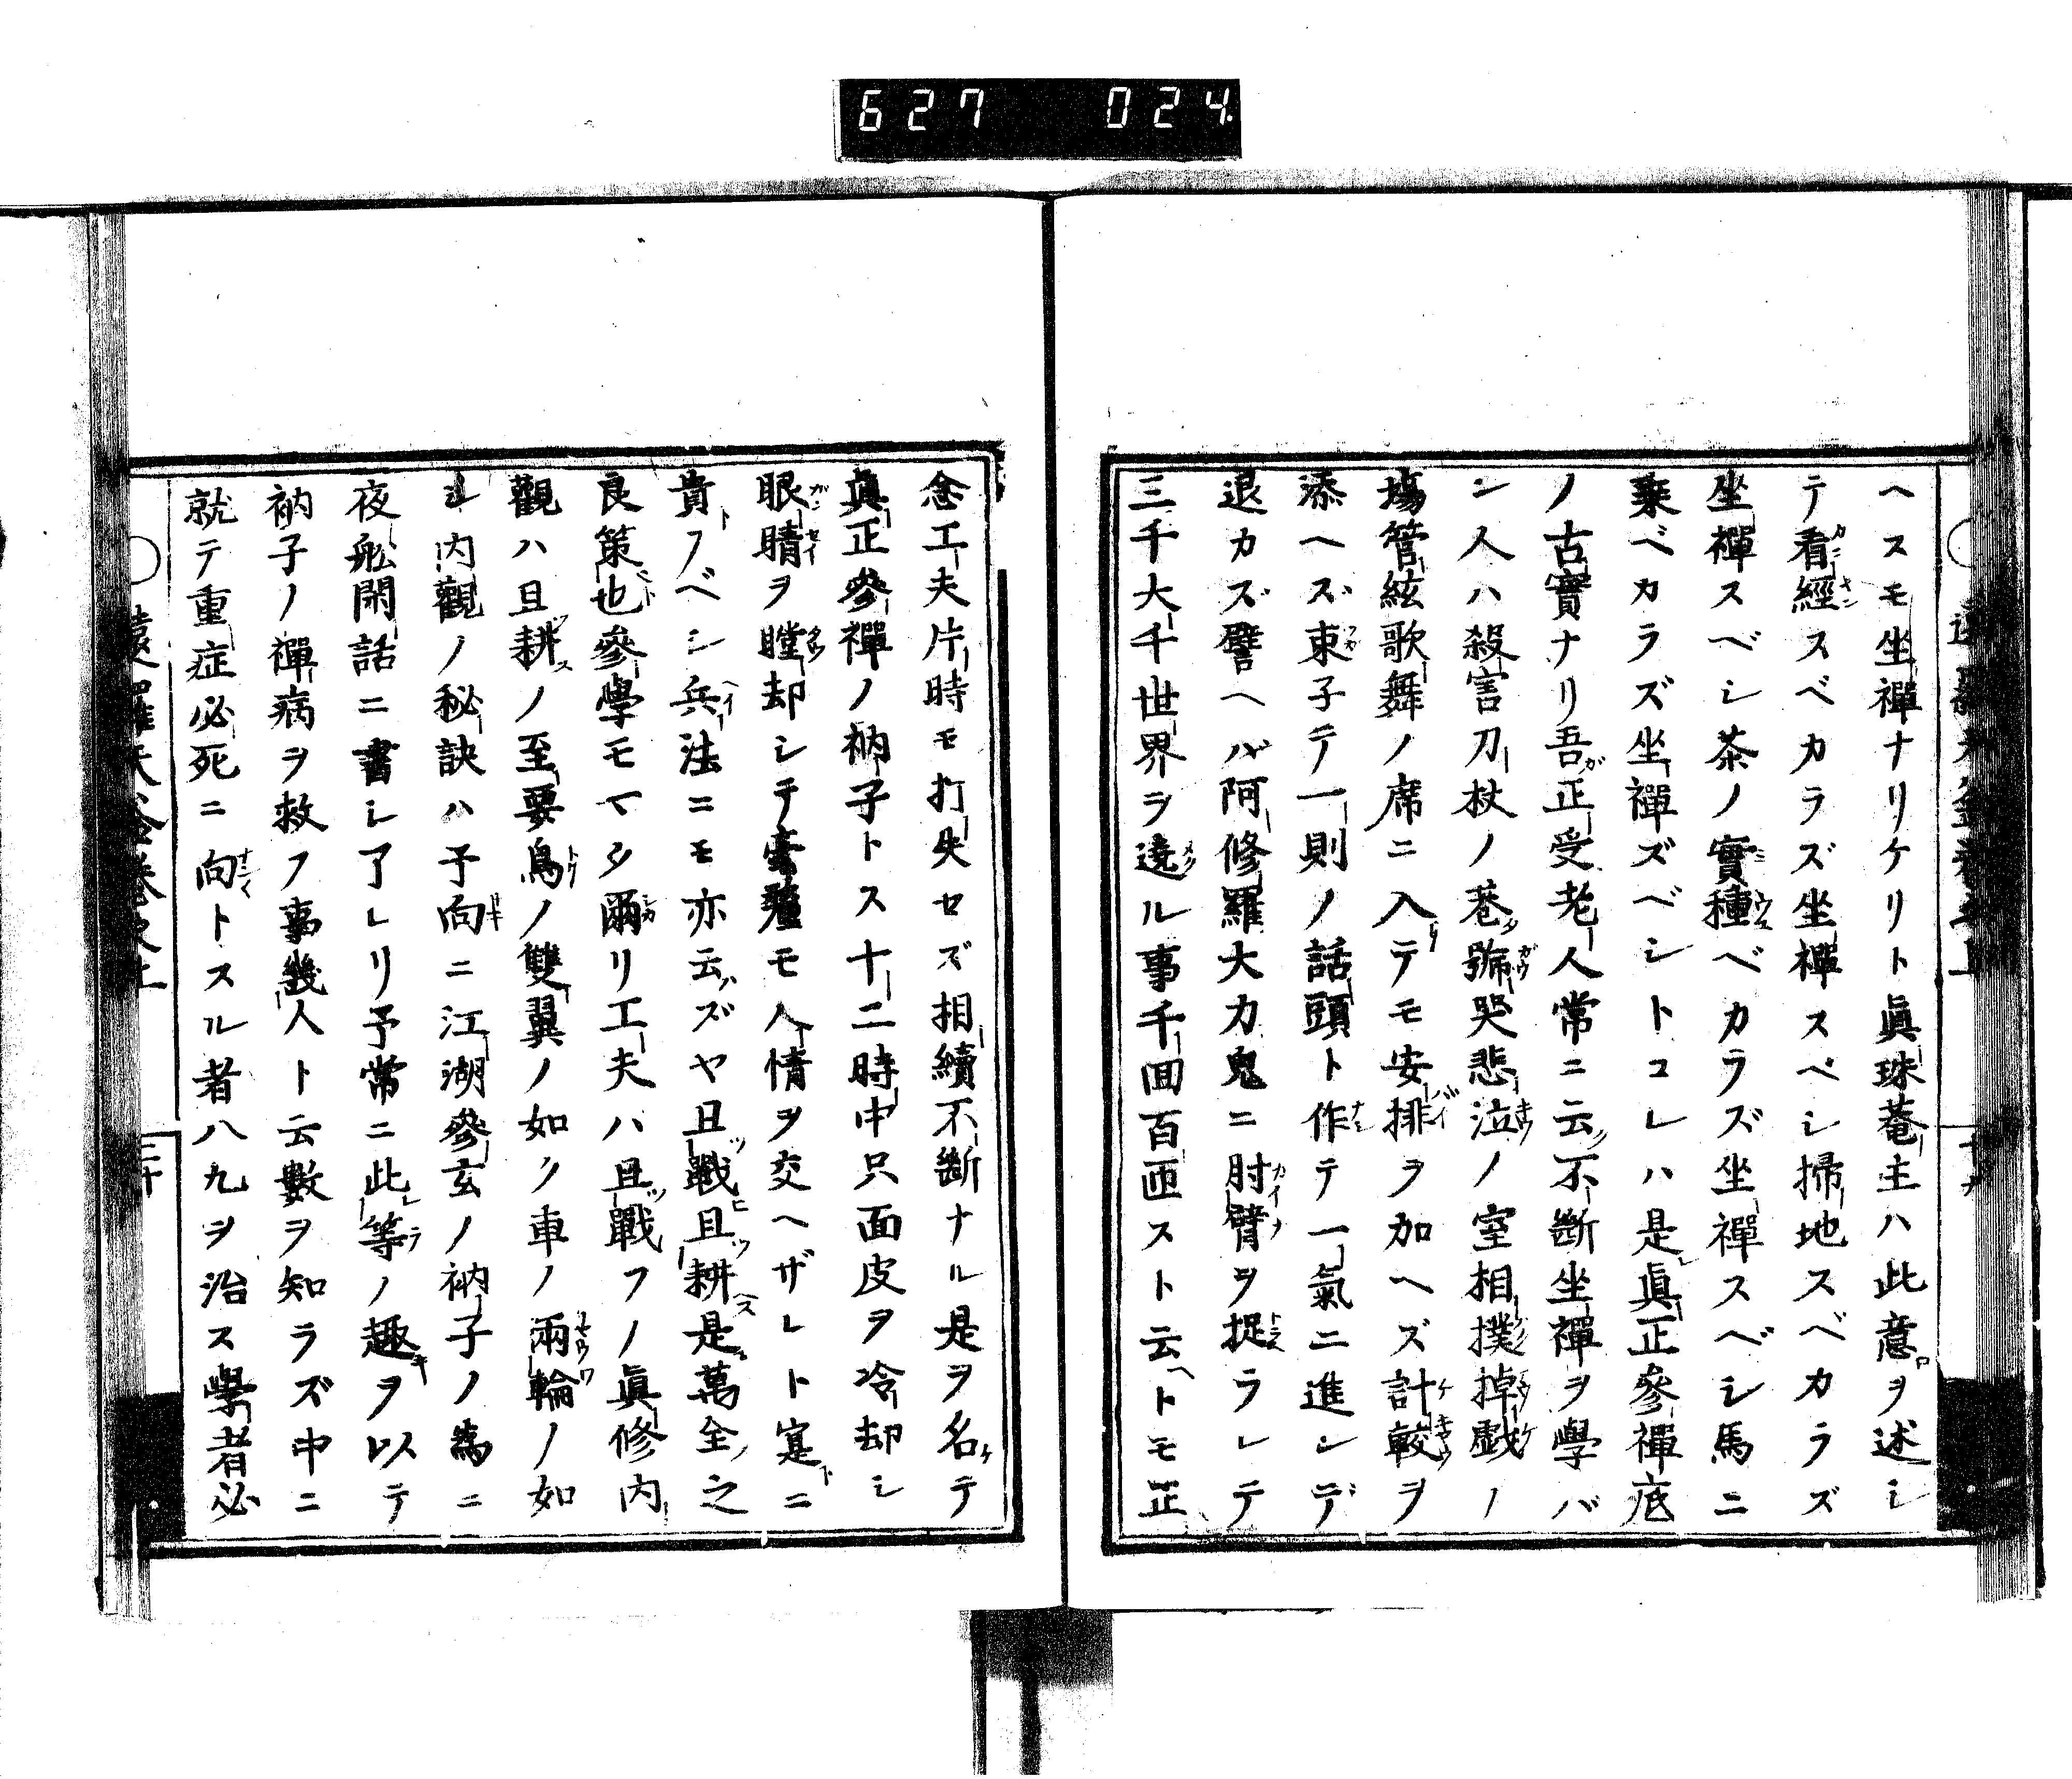 627 024
ヘスモ坐禪ナリケリト眞珠菴主ハ此意ヲ述シ
テ看經スベカラズ坐禪スベシ掃地スベカラズ
坐禪スベシ茶ノ實種ベカラズ坐禪スベシ馬ニ
乗ベカラズ坐禪ズベシトコレハ是眞正參禪底
ノ古實ナリ吾正受老人常ニ云不斷坐禪ヲ學バ
ン人ハ殺害刀杖ノ巷號哭悲泣ノ室相撲掉戯ノ
塲管絃歌舞ノ席ニ入テモ安排ヲ加ヘズ計較ヲ
添ヘズ束子テ一則ノ話頭ト作テ一氣ニ進ンデ
退カズ譬ヘバ阿修羅大力鬼ニ肘臂ヲ捉ラレテ
三千大千世界ヲ遶ル事千回百匝スト云ヘトモ正
念工夫片時モ打失セズ相續不斷ナル是ヲ名テ
眞正參禪ノ衲子トス十二時中只面皮ヲ冷却シ
眼睛ヲ瞠却シテ毫釐モ人情ヲ交ヘザレト寔ニ
貴フベシ兵法ニモ亦云ズヤ且戰且耕是萬全之
良策也參學モマタ爾リ工夫ハ且戰フノ眞修内
觀ハ且耕ノ至要鳥ノ雙翼ノ如ク車ノ兩輪ノ如
シ内觀ノ秘訣ハ予向ニ江湖參玄ノ衲子ノ爲ニ
夜舩閑話ニ書シ了レリ予常ニ此等ノ趣ヲ以テ
衲子ノ禪病ヲ救フ事幾人ト云數ヲ知ラズ中ニ
就テ重症必死ニ向トスル者八九ヲ治ス學者必